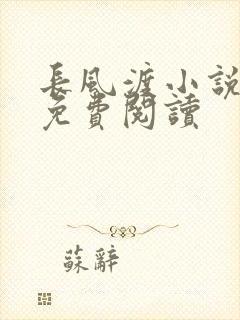 長風渡小說
免費閱讀
蘇辭